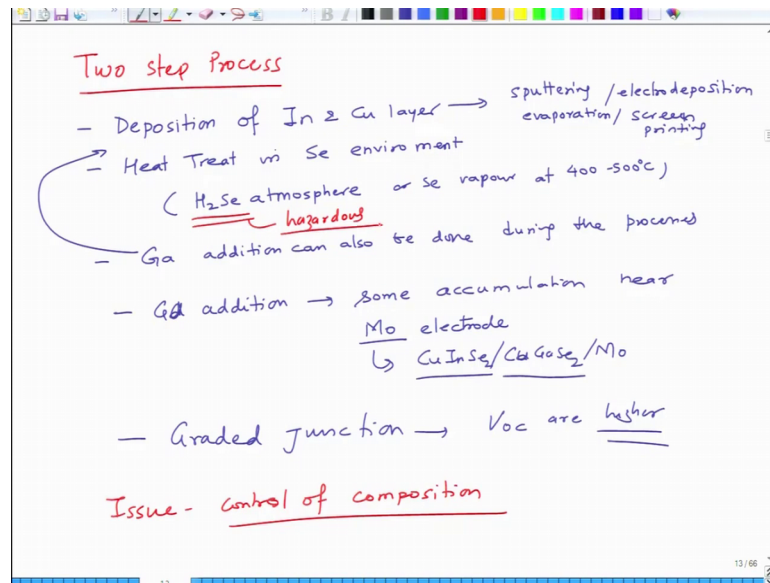 Two step Process
- Deposition of In & Cu layer → sputtering / electrodeposition
evaporation / screen
printing
- Heat Treat in Se enviroment
( H2Se atmosphere or Se vapour at 400-500°C )
hazardous
- Ga addition can also be done during the process
- Ga addition → some accumulation near
Mo electrode
↳ CuInSe2/CuGaSe2/Mo
- Graded Junction → Voc are higher
Issue - control of composition
13 / 66